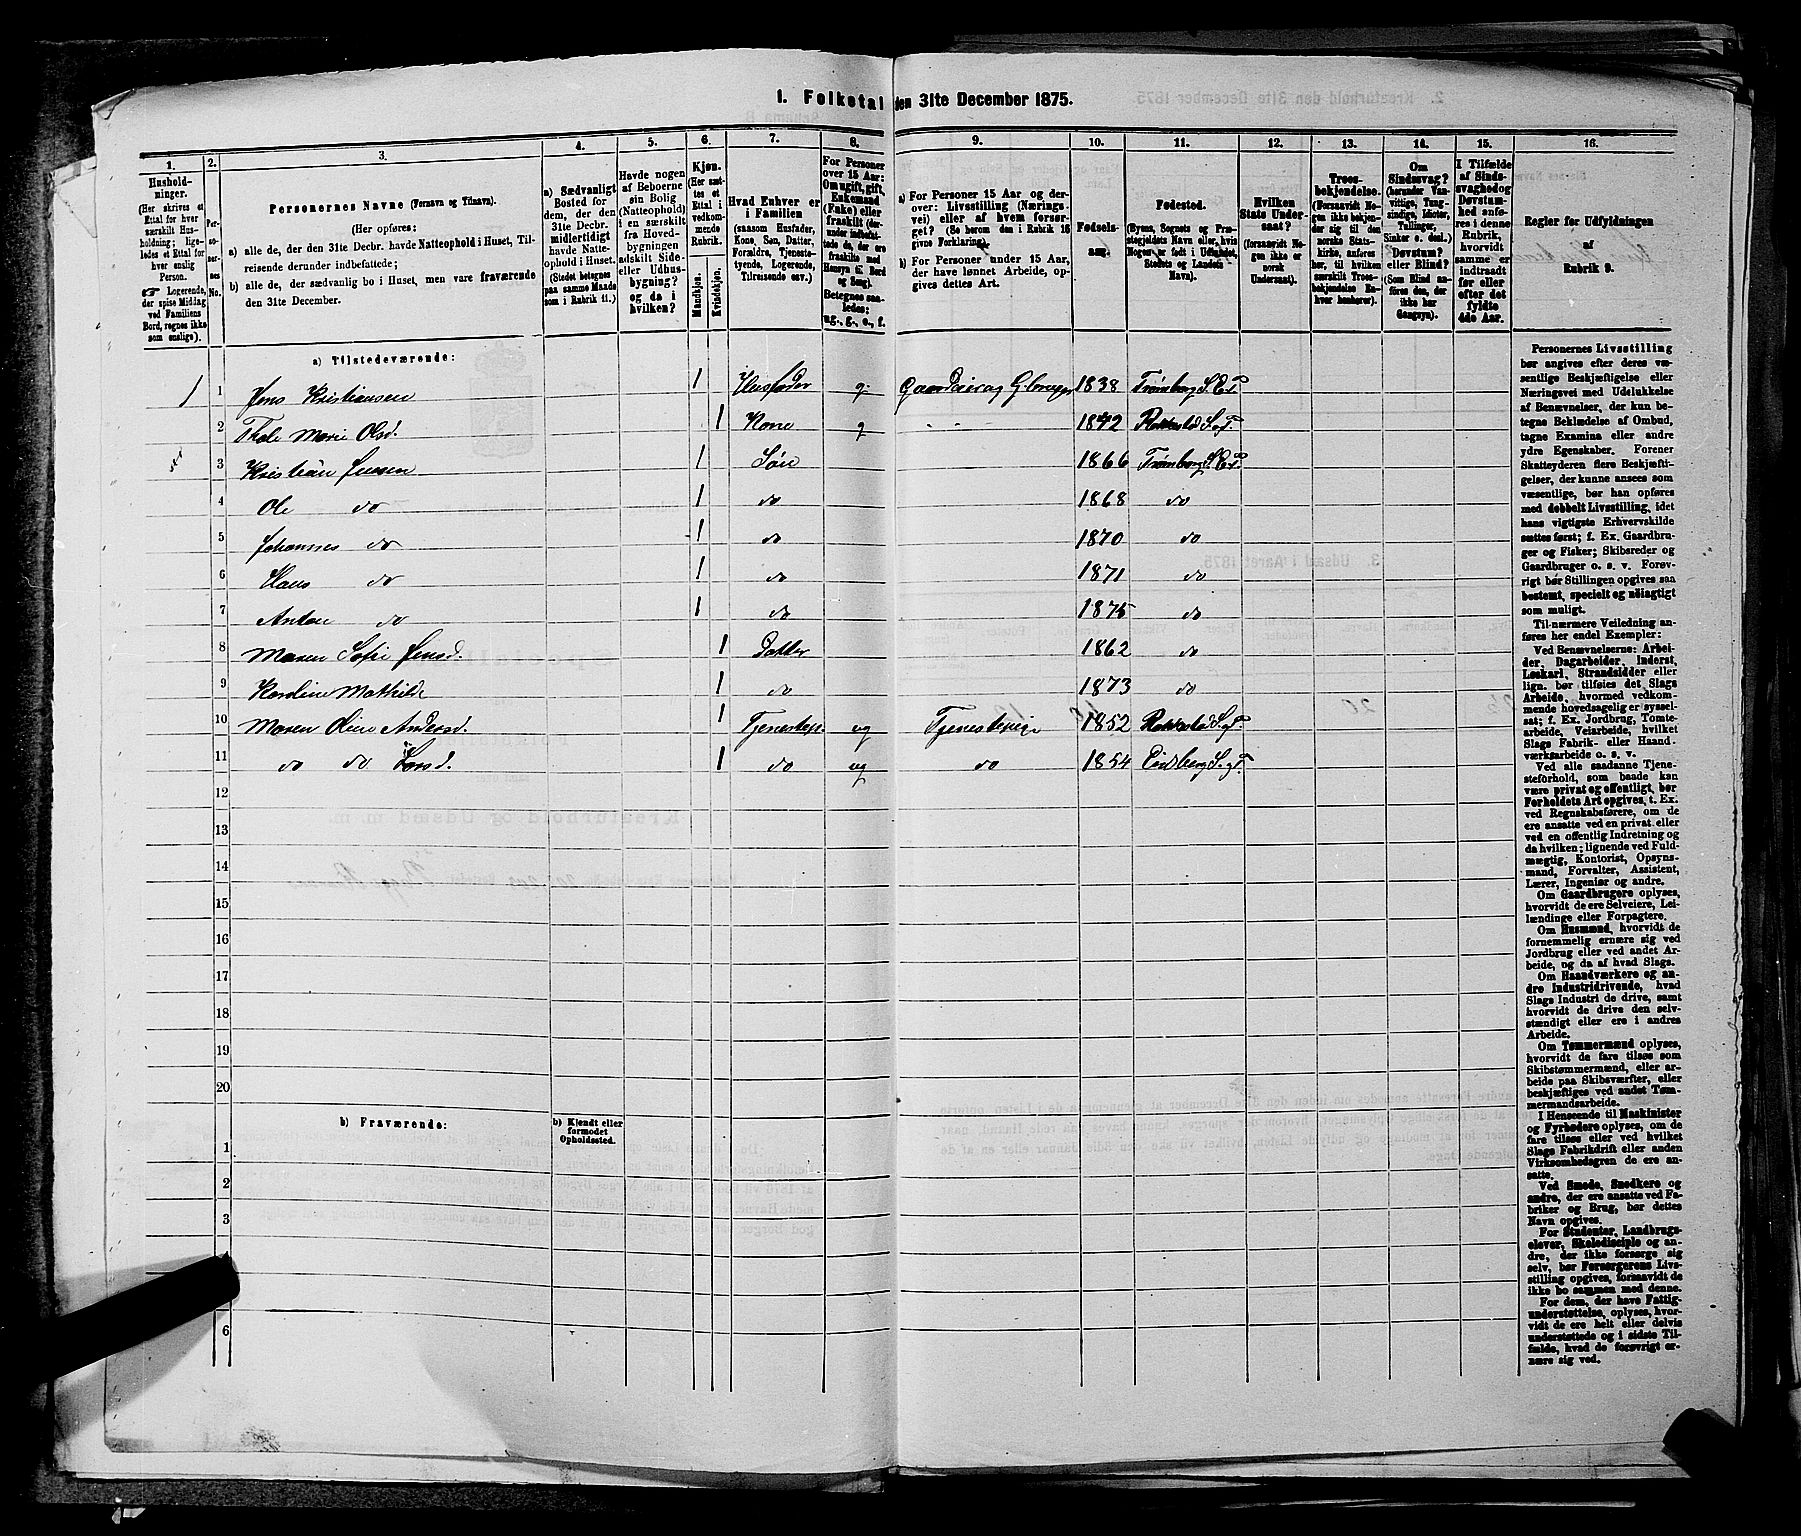 1. Folketal den 31te December 1875.
1. 2. 3. 4. 5. 6. 7. 8. 9. 10. 11. 12. 13. 14. 15. 16.
Husholdninger.
(Her skrives et Ettal for hver særskilt Husholdning; ligeledes et Ettal for hver enslig Person.
Logerende, der spise Middag ved Familiens Bord, regnes ikke som enslige).
Personernes No.
Personernes Navne (Fornavn og Tilnavn).
(Her opføres:
a) alle de, der den 31te Decbr. havde Natteophold i Huset, Tilreisende derunder indbefattede;
b) alle de, der sædvanlig bo i Huset, men vare fraværende den 31te December.
a) Sædvanligt Bosted for dem, der den 31te Decbr. midlertidigt havde Natteophold i Huset. (Stedet betegnes paa samme Maade som i Rubrik 11.)
Havde nogen af Beboerne sin Bolig (Natteophold) i en særskilt fra Hovedbygningen adskilt Side- eller Udhusbygning? og da i hvilken?
Kjøn.
(Her sættes et Ettal i vedkommende Rubrik.
Mandkjøn. Kvindekjøn.
Hvad Enhver er i Familien
(saasom Husfader, Kone, Søn, Datter, Forældre, Tjenestetyende, Logerende, Tilreisende osv.)
For Personer over 15 Aar: Om ugift, gift, Enkemand (Enke) eller fraskilt (derunder indbefattede de, der ere fraskilte med Hensyn til Bord og Seng). Betegnes saaledes: ug., g., e., f.
a) For Personer 15 Aar og derover: Livsstilling (Næringsvei) eller af hvem forsørget? (Se herom den i Rubrik 16 givne Forklaring.
b) For Personer under 15 Aar, der have lønnet Arbeide, opgives dettes Art.
Fødselsaar.
Fødested.
(Byens, Sognets og Præstegjeldets Navn eller, hvis Nogen er født i Udlandet, Stedets og Landets Navn).
Hvilken Stats Undersaat?
(forsaavidt Nogen ikke er norsk Undersaat).
Troesbekjendelse.
(Forsaavidt Nogen ikke bekjender sig til den norske Statskirke, anføres her, til hvilken særskilt Troesbekjendelse Enhver henhører).
Om Sindssvag? (herunder Vanvittige, Tungsindige, Idioter, Tullinger, Sinker o. desl.) Døvstum? eller Blind? (Som Blind anføres den, der ikke har Gangsyn).
I Tilfælde af Sindssvaghed og Døvstumhed anføres i denne Rubrik, hvorvidt samme er indtraadt før eller efter det fyldte 4de Aar.
Regler for Udfyldningen af Rubrik 9.
a) Tilstedeværende:
1 1 Jens Kristiansen 1 Husfader g. Gaardeier og G.bruger 1838 Trømborg S. E. P.
2 Thale Marie Olsd. 1 Kone g 1842 Rakkestad S. og P.
3 Kristian Jensen 1 Søn 1866 Trømborg S. E. P.
4 Ole do 1 do 1868 do
5 Johannes do 1 do 1870 do
6 Hans do 1 do 1871 do
7 Anton do 1 do 1875 do
8 Maren Sofie Jensd. 1 Datter 1862 do
9 Karoline Mathilde 1 do 1873 do
10 Maren Oline Andersd. 1 Tjenestep. ug Tjenestepige 1852 Rakkestad S. og P.
11 do do Larsd. 1 do ug do 1854 Eidsberg S. og P.
12
13
14
15
16
17
18
19
20
b) Fraværende: b) Kjendt eller formodet Opholdssted.
1
2
3
6
Personernes Livsstilling
bør angives efter deres væsentlige Beskjæftigelse eller
Næringsvei med Udelukkelse
af Benævnelser, der kun betegne Beklædelse af Ombud,
tagne Examina eller andre
ydre Egenskaber. Forener
Skatteyderen flere Beskjæftigelser, der kunne ansees som
væsentlige, bør han opføres
med dobbelt Livsstilling, idet
hans vigtigste Erhvervskilde
sættes først; f. Ex. Gaardbruger og Fisker; Skibsreder og
Gaardbruger o. s. v. Forøvrigt bør Stillingen opgives saa
bestemt, specielt og nøiagtigt
som muligt.
Til nærmere Veiledning anføres her endel Exempler:
Ved Benævnelserne: Arbeider, Dagarbeider, Inderst,
Løskarl, Strandsidder eller
lign. bør tilføies det Slags
Arbeide, hvormed vedkommende hovedsagelig er sysselsat; f. Ex. Jordbrug, Tomtearbeide, Veiarbeide, hvilket
Slags Fabrik- eller Haandværksarbeide o. s. v.
Ved alle saadanne Tjenesteforhold, som baade kan
være privat og offentligt, bør
Forholdets Art opgives, t. Ex.
ved Regnskabsførere, om de
ere ansatte ved en privat eller
ved en offentlig Indretning og
da hvilken; lignende ved Fuldmægtig, Kontorist, Opsynsmand, Forvalter, Assistent,
Lærer, Ingeniør og andre.
Om Gaardbrugere oplyses,
hvorvidt de ere Selveiere, Leilændinge eller Forpagtere.
Om Husmænd, hvorvidt de
fornemmelig ernære sig ved
Jordbrug eller ved andet Arbeide, og da af hvad Slags.
Om Haandværkere og andre Industridrivende, hvad
Slags Industri de drive, samt
hvorvidt de drive den selvstændigt eller ere i andres
Arbeide.
Om Tømmermænd oplyses,
hvorvidt de fare tilsøs som
Skibstømmermænd, eller arbeide paa Skibsværfter, eller
beskjæftiges ved andet Tømmermandsarbeide.
I Henseende til Maskinister
og Fyrbødere oplyses, om de
fare tilsøs eller ved hvilket
Slags Fabrikdrift eller anden
Virksomhedsgren de ere ansatte.
Ved Smede, Snedkere og
andre, der ere ansatte ved Fabriker og Brug, bør dettes
Navn opgives.
For Studenter, Landbrugselever, Skoledisciple og andre, der ikke forsørge sig
selv, bør Forsørgerens Livsstilling opgives, forsaavidt de
ikke bo sammen med denne.
For dem, der have Fattigunderstøttelse, oplyses, hvorvidt de ere helt eller delvis
understøttede og i sidste Tilfælde, hvad de forøvrigt ernære sig ved.